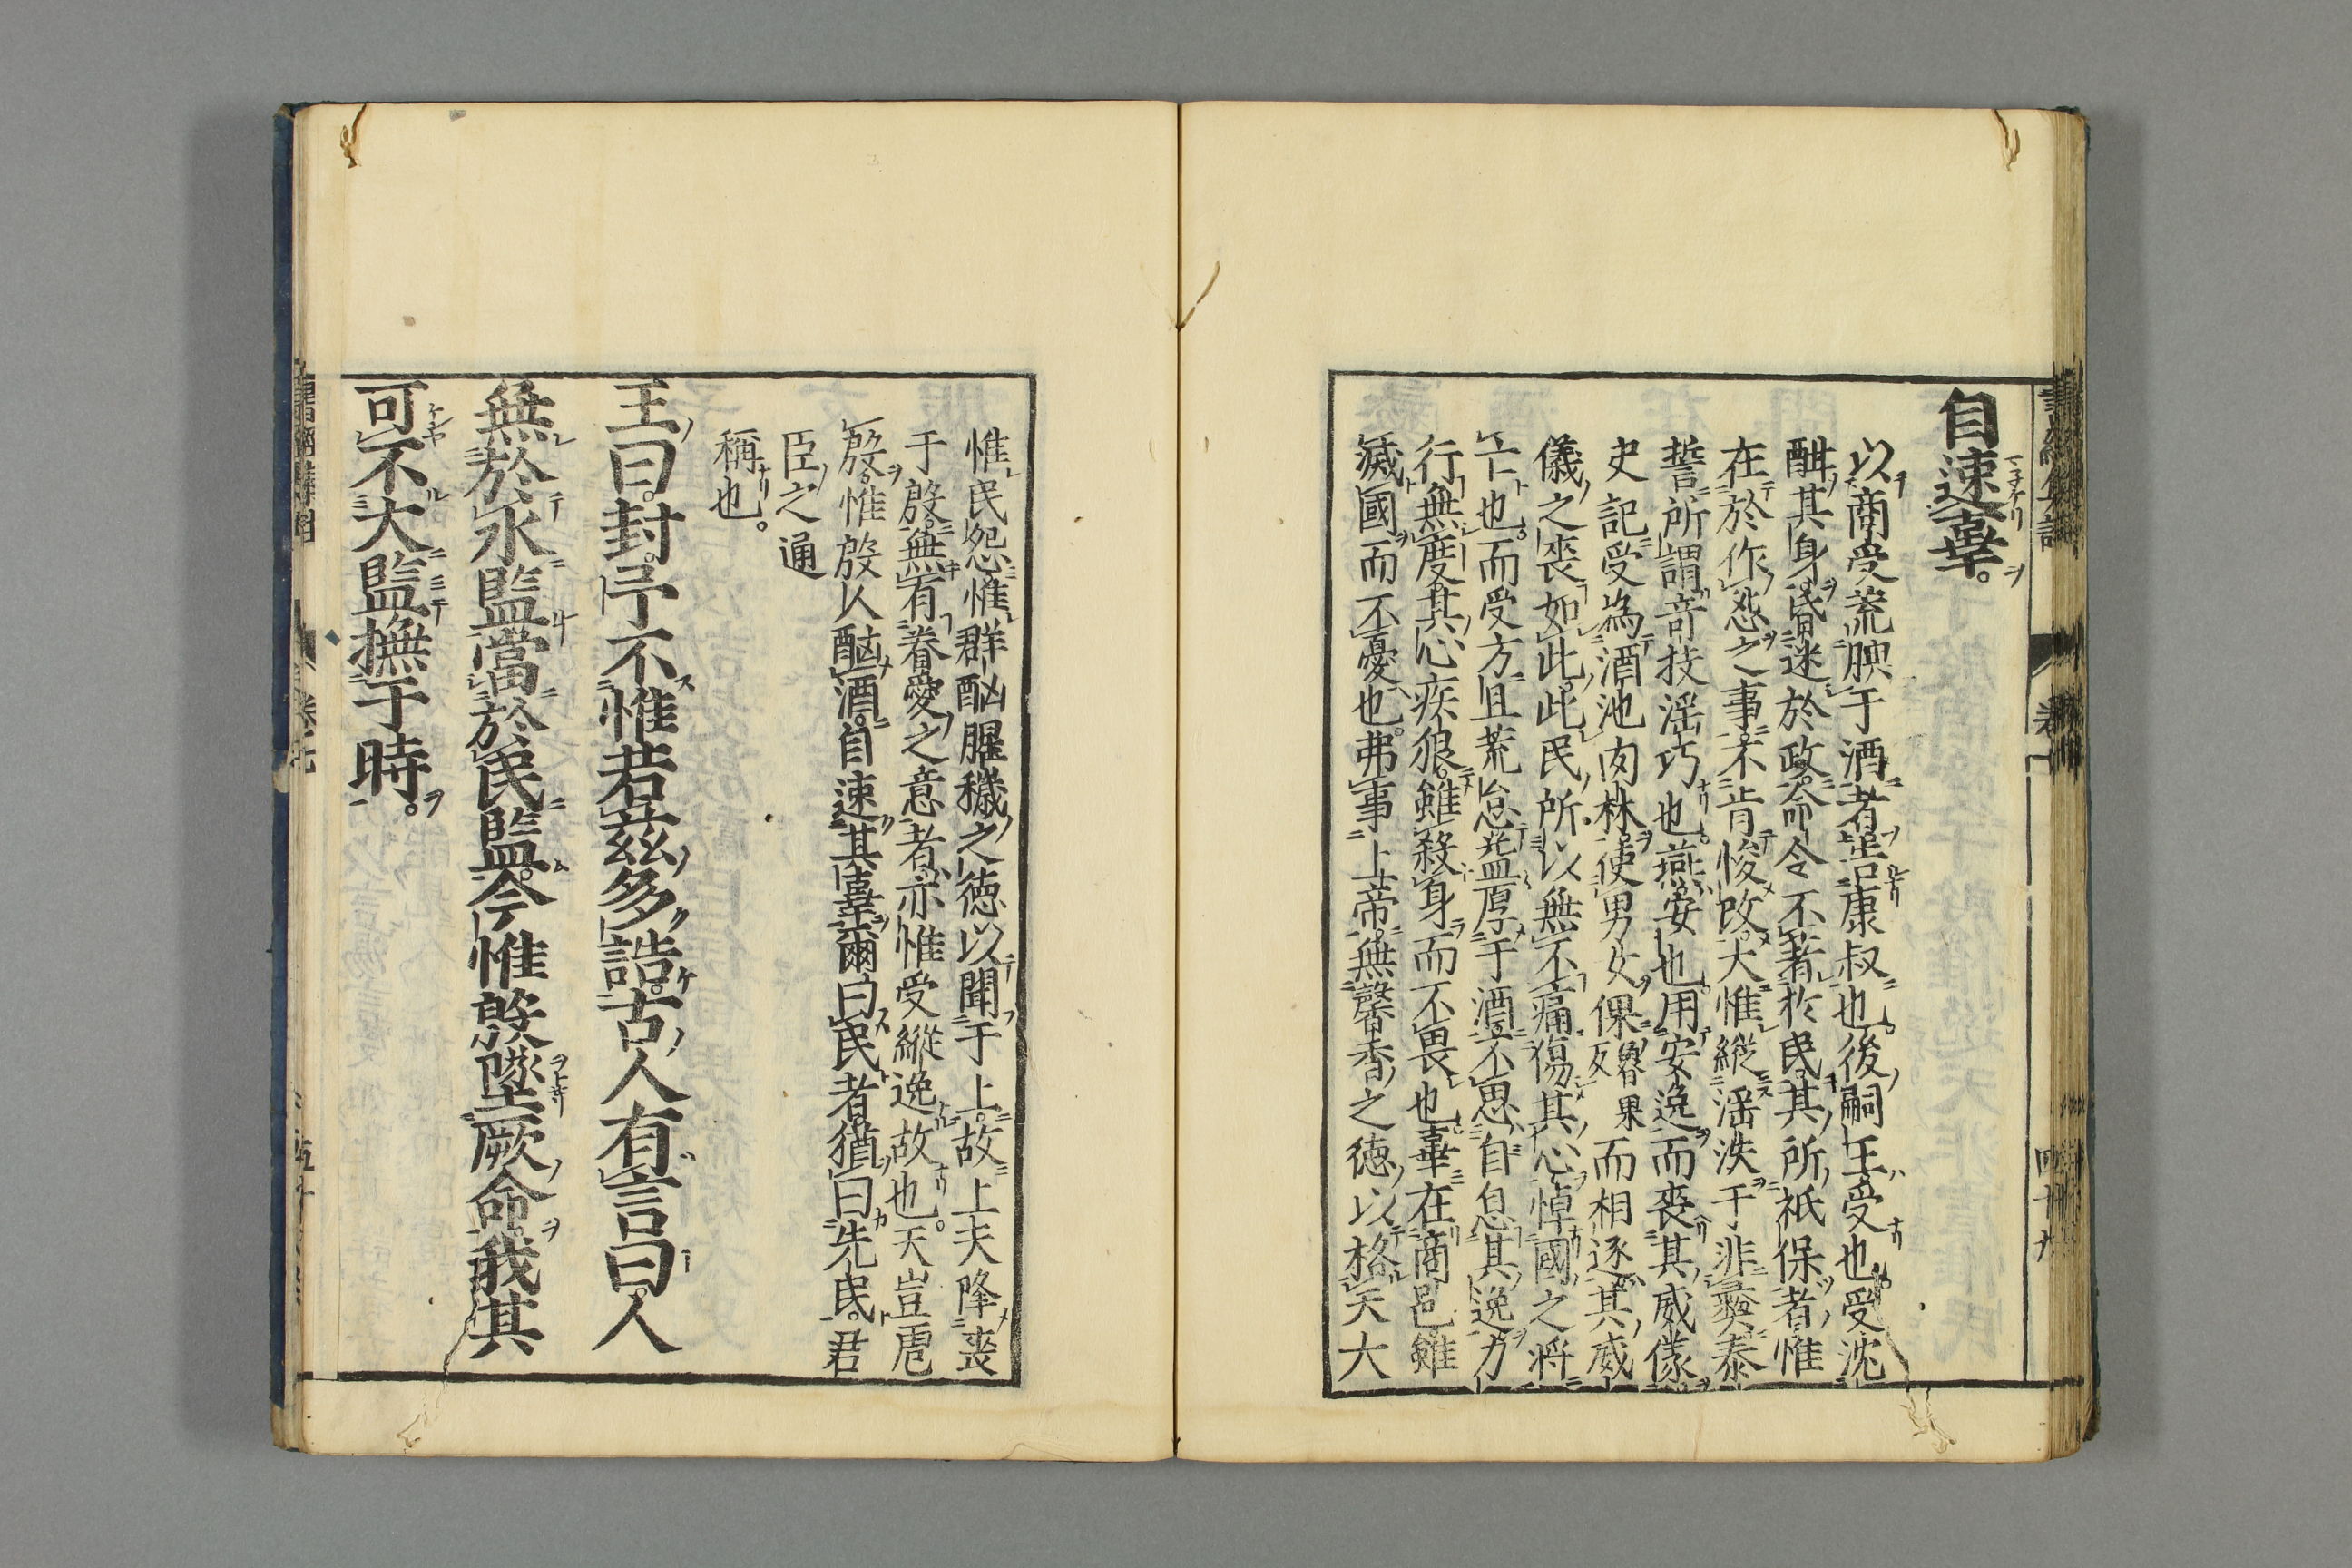 自速辜。
以商受荒腆于酒者告康叔也。後嗣王受也。受沈
酣其身昏迷於政。命令不著於民。其所祗保者惟
在於作怨之事。不肯悛改。大惟縱淫泆于非彝。泰
誓所謂竒技淫巧也。燕安也。用安逸而喪其威儀。
史記受為酒池肉林使男女倮魯果反而相逐。其威
儀之喪如此。此民所以無不痛傷其心悼國之將
亡也。而受方且荒怠益厚于酒。不思自息其逸力
行無度。其心疾狠。雖殺身而不畏也。辜在商邑雖
滅國而不憂也。弗事上帝。無馨香之徳以格天大
惟民怨。惟群酗腥穢之徳以聞于上。故上天降喪
于殷。無有眷愛之意者亦惟受縱逸故也。天豈虐
殷。惟殷人酗酒。自速其辜爾。曰民者猶曰先民。君
臣之通
稱也。
王曰。封。予不惟若茲多誥。古人有言曰。人
無於水監。當於民監。今惟殷墜厥命。我其
可不大監撫于時。
卷七